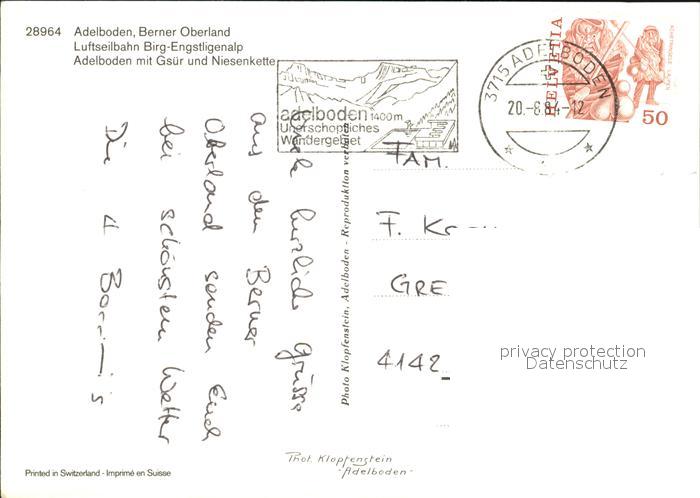 28964 Adelboden, Berner Oberland
Luftseilbahn Birg-Engstligenalp
Adelboden mit Gsür und Niesenkette
adelboden 1400m
Unerschöpfliches
Wandergebiet
3715 ADELBODEN
20.-8.84-12
HELVETIA
50
Viele herzliche Grüsse
aus dem Berner
Oberland senden Euch
bei schönstem Wetter
Die 4
Photo Klopfenstein, Adelboden - Reproduktion verboten
FAM.
F. Kr
GRE
4142
privacy protection
Datenschutz
Phot. Klopfenstein
-Adelboden-
Printed in Switzerland - Imprimé en Suisse